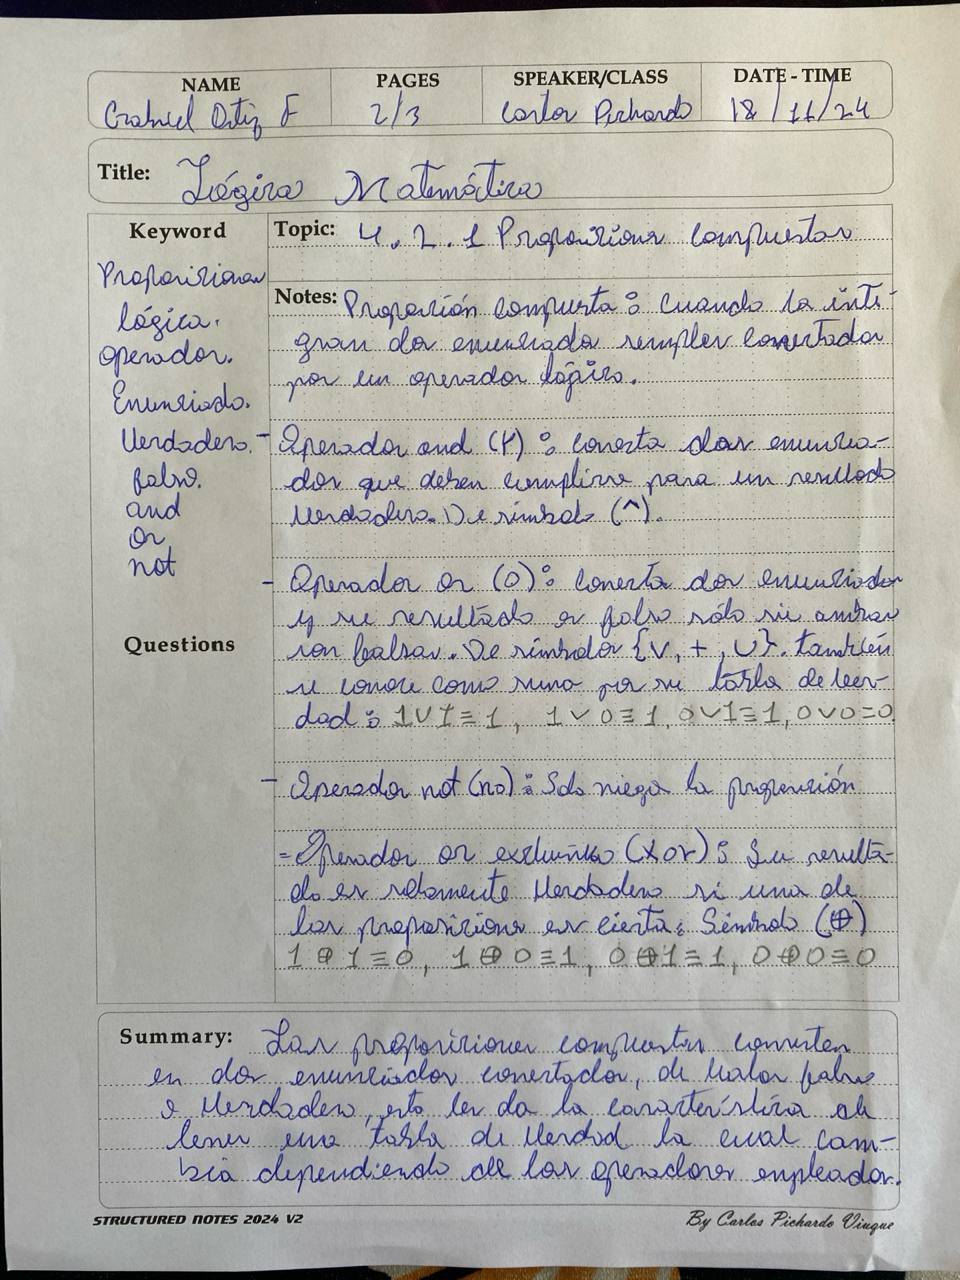 NAME PAGES SPEAKER/CLASS DATE - TIME
Gabriel Ortiz F 2/3 Carlos Pichardo 18/11/24
Title: Lógica Matemática
Keyword
Proposiciones
lógica.
operador.
Enunciado.
Verdadero.
falso.
and
or
not
Questions
Topic: 4.2.1 Proposiciones compuestas
Notes: Proposición compuesta: cuando la inte-
gran dos enunciados simples conectados
por un operador lógico.
- Operador and (Y): conecta dos enuncia-
dos que deben cumplirse para un resultado
Verdadero. De símbolo (^).
- Operador or (O): conecta dos enunciados
y su resultado es falso sólo si ambas
son falsas. De símbolos {v, +, U}. también
se conoce como suma por su tabla de ver-
dad: 1V1≡1, 1V0≡1, 0V1≡1, 0V0=0.
- Operador not (no): Solo niega la proposición
- Operador or exclusivo (xor): Su resulta-
do es solamente Verdadero si una de
las proposiciones es cierta: Símbolo (⊕)
1⊕1≡0, 1⊕0≡1, 0⊕1≡1, 0⊕0≡0
Summary: Las proposiciones compuestas consisten
en dos enunciados conectados, de valor falso
o Verdadero, esto les da la característica de
tener una tabla de Verdad la cual cam-
bia dependiendo de los operadores empleados.
STRUCTURED NOTES 2024 V2 By Carlos Pichardo Viuque